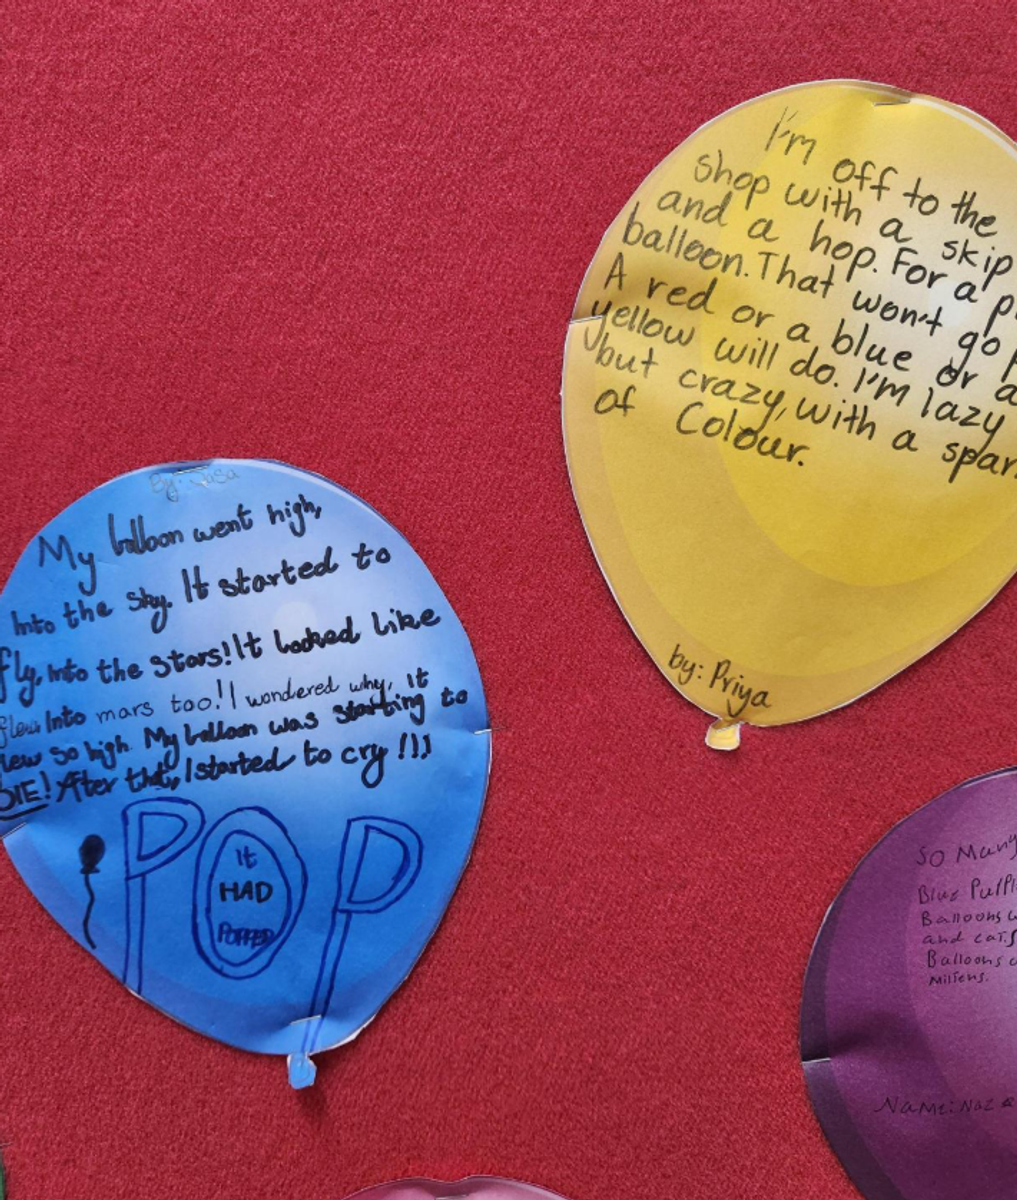 By: Jasa
My balloon went high,
Into the sky. It started to
fly, into the stars! It looked like
flew Into mars too! I wondered why, it
lew so high. My balloon was starting to
DIE! After that, I started to cry !!!
POP
It
HAD
POPPED
I'm off to the
shop with a skip
and a hop. For a p
balloon. That won't go p
A red or a blue or a
yellow will do. I'm lazy
but crazy, with a spar
of Colour.
by: Priya
So Many
Blue Purpl
Balloons w
and cats
Balloons a
mittens.
Name: Naz